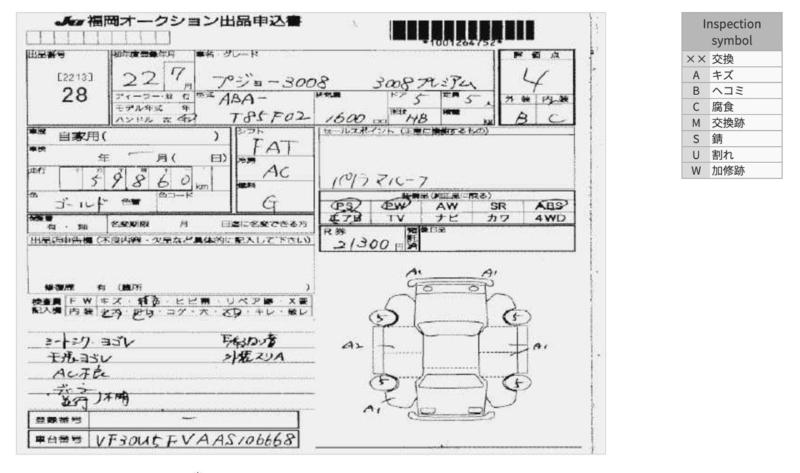 JU 福岡オークション出品申込書
*1001264752*
出品番号
[2213]
28
初年度登録年月
22 7月
車名・グレード
プジョー3008 3008プレミアム
評価点
4
外装 内装
B C
ディーラー・並 行
モデル年式 年
ハンドル 左 右
型式
ABA-
T85F02
排気量
1600 cc
ドア
5
定員
5 人
形状
HB
積載
kg
車歴
自家用( )
車検
年 月( 日)
走行
59860 km
色
ゴールド
色替
色コード
シフト
FAT
冷房
AC
燃料
G
セールスポイント
パノラマルーフ
装備品(純正品に限る)
PS PW AW SR ABS
エアB TV ナビ カワ 4WD
有・無 名変期限 月 日迄に名変できる方
R券
21300 円
後日品
出品店申告欄(不良内容・欠品など具体的に記入して下さい)
修復歴 有 (箇所 )
検査員
記入欄
FW キズ・ヒビ・リペア跡・X要
内装 コゲ・穴・キレ・
シートシワ ヨゴレ
モール ヨゴレ
外装スリA
AC不良
ディーラー
並行
不明
A1 A1
5 5
A2 A1
5 5
A1
登録番号
ー
車台番号
VF30U5FVAAS106668
Inspection
symbol
×× 交換
A キズ
B ヘコミ
C 腐食
M 交換跡
S 錆
U 割れ
W 加修跡